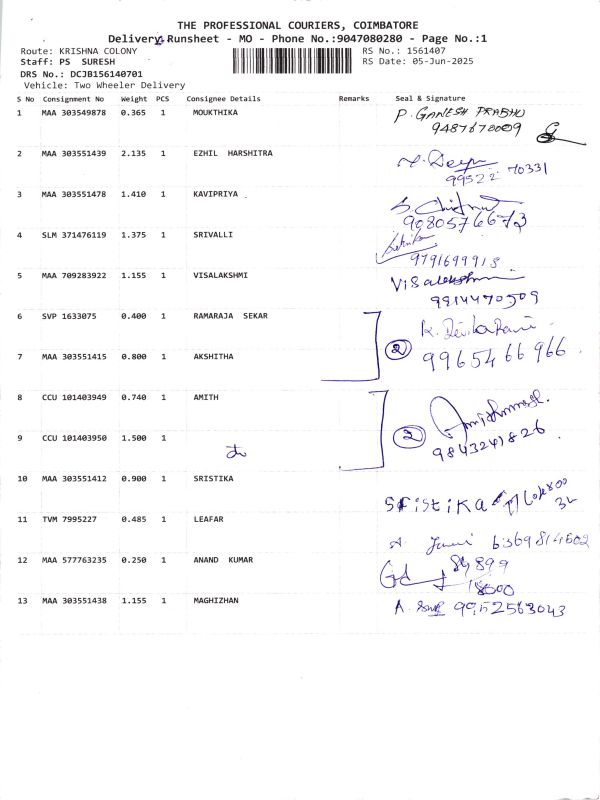 THE PROFESSIONAL COURIERS, COIMBATORE
Delivery Runsheet - MO - Phone No.:9047080280 - Page No.:1
Route: KRISHNA COLONY
RS No.: 1561407
Staff: PS SURESH
RS Date: 05-Jun-2025
DRS No.: DCJB156140701
Vehicle: Two Wheeler Delivery
S No Consignment No Weight PCS Consignee Details Remarks Seal & Signature
1 MAA 303549878 0.365 1 MOUKTHIKA P. GANESH PRABHU
9487670009
2 MAA 303551439 2.135 1 EZHIL HARSHITRA
99522 70331
3 MAA 303551478 1.410 1 KAVIPRIYA .
9080576673
4 SLM 371476119 1.375 1 SRIVALLI
9791699913
5 MAA 709283922 1.155 1 VISALAKSHMI Visalakshmi
9914470509
6 SVP 1633075 0.400 1 RAMARAJA SEKAR
7 MAA 303551415 0.800 1 AKSHITHA 2 9965466966
8 CCU 101403949 0.740 1 AMITH
9 CCU 101403950 1.500 1 2 9843241826
10 MAA 303551412 0.900 1 SRISTIKA SriStiKa
11 TVM 7995227 0.485 1 LEAFAR
6369814602
12 MAA 577763235 0.250 1 ANAND KUMAR 89899
18000
13 MAA 303551438 1.155 1 MAGHIZHAN A. 9952563043